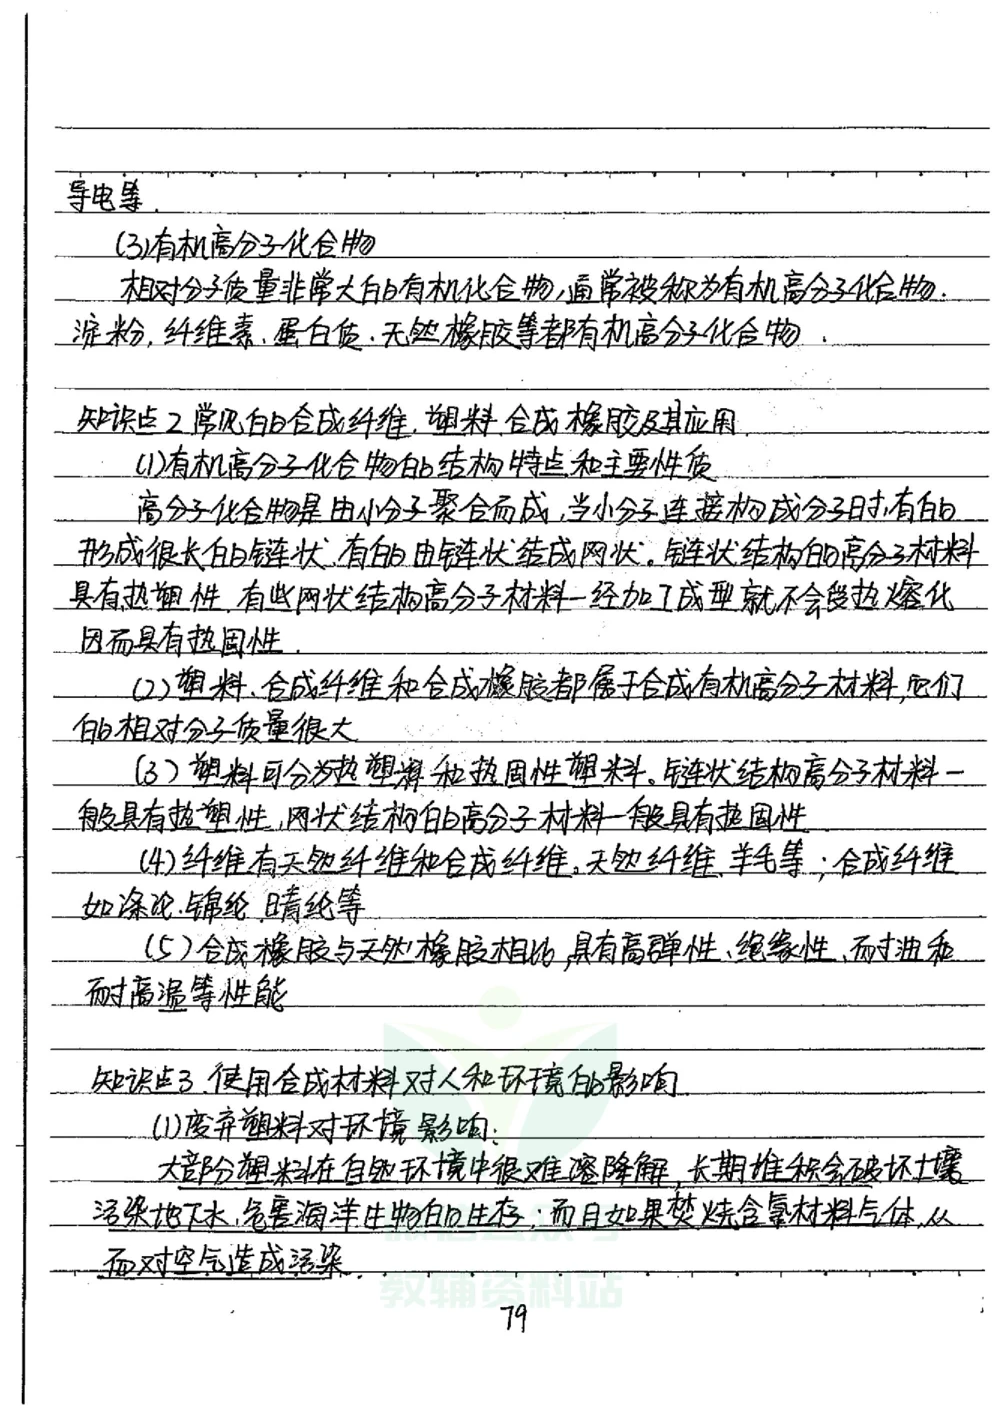 导电等.
(3)有机高分子化合物
相对分子质量非常大的有机化合物,通常被称为有机高分子化合物.
淀粉,纤维素、蛋白质、天然橡胶等都有机高分子化合物.
知识点2 常见的合成纤维、塑料、合成橡胶及其应用
(1)有机高分子化合物的结构特点和主要性质
高分子化合物是由小分子聚合而成,当小分子连接构成分子时,有的
形成很长的链状,有的由链状结成网状。链状结构的高分子材料
具有热塑性,有些网状结构高分子材料一经加工成型就不会受热熔化
因而具有热固性.
(2)塑料、合成纤维和合成橡胶都属于合成有机高分子材料,它们
的相对分子质量很大
(3)塑料可分为热塑料和热固性塑料。链状结构高分子材料一
般具有热塑性,网状结构的高分子材料一般具有热固性
(4)纤维有天然纤维和合成纤维。天然纤维、羊毛等;合成纤维
如涤沦、锦纶、晴纶等
(5)合成橡胶与天然橡胶相比,具有高弹性、绝缘性、耐油和
耐高温等性能
知识点3.使用合成材料对人和环境的影响
(1)废弃塑料对环境影响:
大部分塑料在自然环境中很难溶降解,长期堆积会破坏土壤
污染地下水,危害海洋生物的生存;而且如果焚烧含氯材料气体,从
而对空气造成污染.
教辅资料站
79